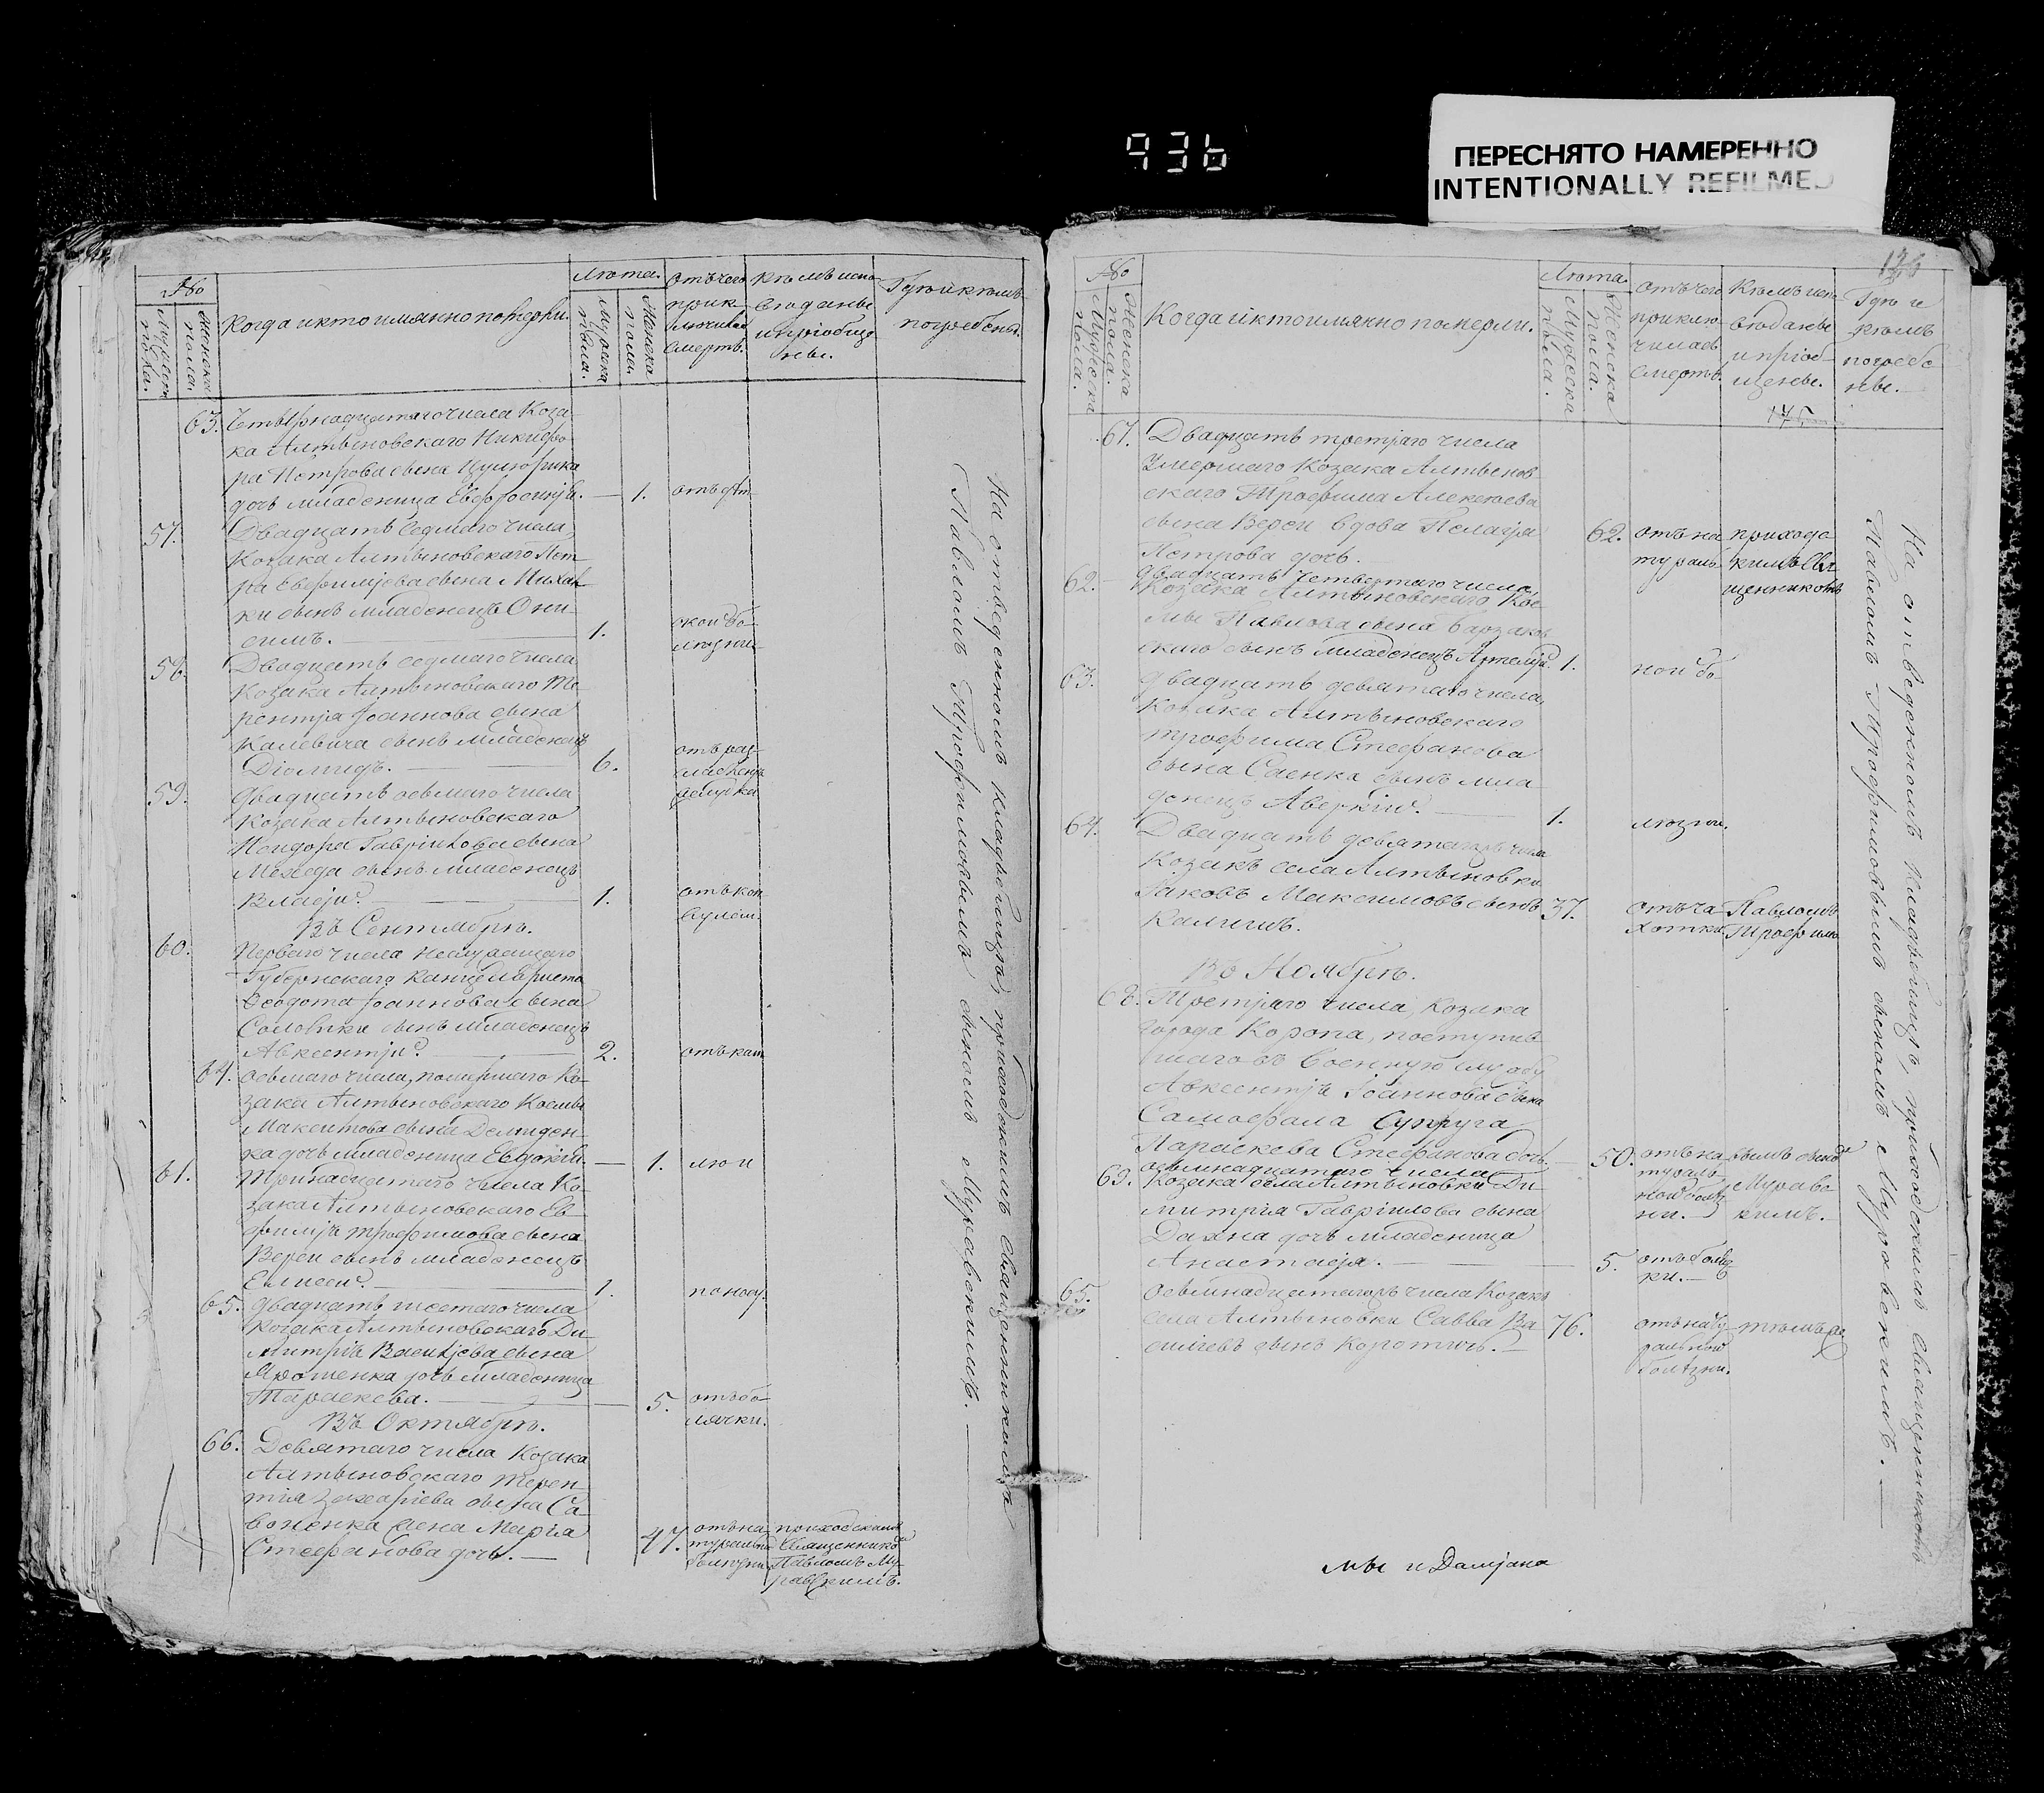 936
ПЕРЕСНЯТО НАМЕРЕННО
INTENTIONALLY REFILMED
№
Мужеска пола.
Женска пола.
Когда и кто имянно померли.
Лѣта.
Мужеска пола.
Женска пола.
Отъ чего
прик-
лючилась
смерть.
Кѣмъ испо-
вѣданы
и пріобще-
ны.
Гдѣ и кѣмъ
погребены.
63. Четырнадцятаго числа Коза-
ка Алтыновскаго Никифо-
ра Петрова сына
дочь младеница Евфросинія. — 1. отъ
57. Двадцать седмаго числа,
Козака Алтыновскаго Пет-
ра Евфимјева сына
ки сынъ младенецъ Они-
симъ. — 1. ской бо-
лѣзни
58. Двадцать седмаго числа
Козака Алтыновскаго Те-
рентја Іоаннова сына
Калевича сынъ младенецъ
Діомидъ. — 6. отъ
59. Двадцать осьмаго числа
Козака Алтыновскаго
Гавріилова сына
сынъ младенецъ
Власјй. — 1. отъ
Въ Сентябрѣ.
60. Перваго числа
Губернскаго Канцеляриста
Ѳеодота Іоаннова сына
сынъ младенецъ
Авксентјй. — 2. отъ каш
64. осьмаго числа, помершаго Ко-
зака Алтыновскаго Космы
сына Демиден-
ка дочь младеница Евдокія. — 1. лю и
61. Тринадцятаго числа Ко-
зака Алтыновскаго Ев-
фимја Трофимова сына
Вереи сынъ младенецъ
Елисей. — 1. поносу.
65. Двадцать шестаго числа
Козака Алтыновскаго Ди-
митрја Василјева сына
Ярошенка дочь младеница
Параскева. — 5. отъ бо-
лячки.
Въ Октябрѣ.
66. Девятаго числа Козака
Алтыновскаго Терен-
тія Захаріева сына Са-
воненка жена Марія
Стефанова дочь. — 47. отъ на-
туральной
болѣзни
приходскимъ
Священнико
Павломъ Му-
равскимъ.
На отведенномъ кладбищѣ, приходскимъ священникомъ
Павломъ Трофимовымъ сыномъ Муравскимъ. —
136
№
Мужеска пола.
Женска пола.
Когда и кто имянно померли.
Лѣта.
Мужеска пола.
Женска пола.
отъ чего
приклю-
чилась
смерть.
Кѣмъ испо-
вѣданы
и пріоб-
щены.
Гдѣ и
кѣмъ
погребе-
ны. —
175
67. Двадцать третјаго числа
Умершаго Козака Алтынов-
скаго Трофима Алексѣева
сына Вереи вдова Пелагія
Петрова дочь. 62. отъ на-
тураль
приходс-
кимъ Свя-
щенникомъ
62. двадцать четвертаго числа,
Козака Алтыновскаго Кос-
мы Павлова сына
скаго сынъ младенецъ Артемјй. 1. ной бо-
63. Двадцать девятаго числа,
Козака Алтыновскаго
Трофима Стефанова
сына Саенка сынъ мла-
денецъ Аверкій. — 1. лѣзни.
64. Двадцать девятагожъ числа
Козакъ села Алтыновки
Іаковъ Максимовъ сынъ
37. отъ ча-
хотки.
Павломъ
Трофимо
Въ Ноябрѣ.
68. Третјаго числа, Козака
города Коропа, поступив-
шаго въ военную службу
Авксентја Іоаннова сына
Самофала супруга
Параскева Стефанова дочь 50. отъ на-
тураль-
ной болѣз-
ни. —
вымъ сыно
Муравс-
кимъ. —
69. осьмнадцятаго числа
Козака села Алтыновки Ди-
митрія Гавріилова сына
дочь младеница
Анастасја. — 5. отъ боляч-
ки. —
65. Осьмнадцятагожъ числа Козакъ
села Алтыновки Савва Ва-
силіевъ сынъ 76. отъ нату-
ральной
болѣзни.
тѣмъ же
На отведенномъ кладбищѣ, приходскимъ священникомъ
Павломъ Трофимовымъ сыномъ Муравскимъ. —
мы и Дамјана